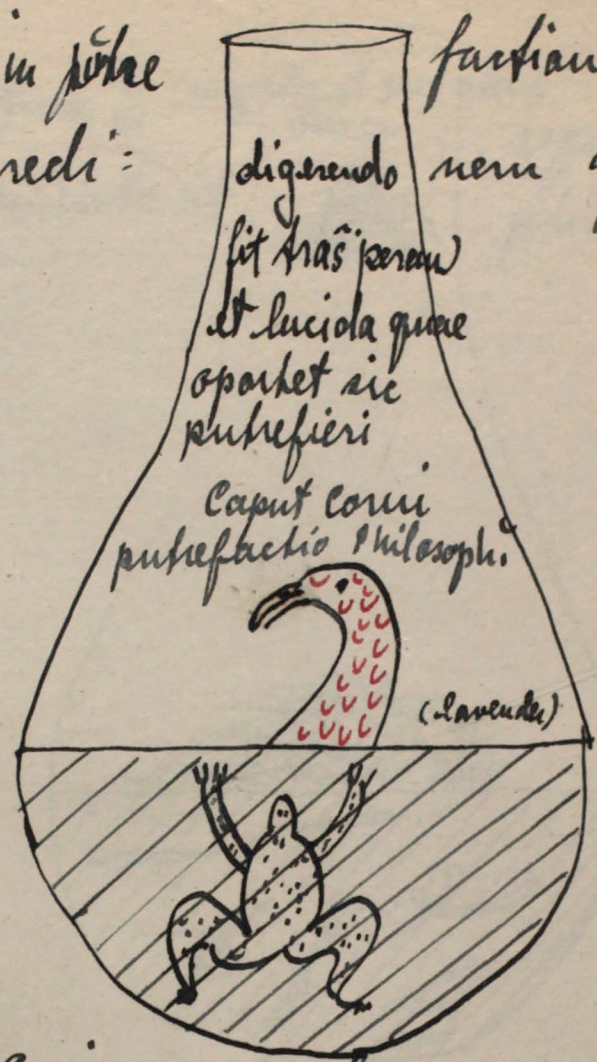 in putre factiou
redi: digerendo nem
fit trãs pereu
et lucida quae
oportet sic
putrefieri
Caput Corui
putrefactio Philosoph.
(lavender)